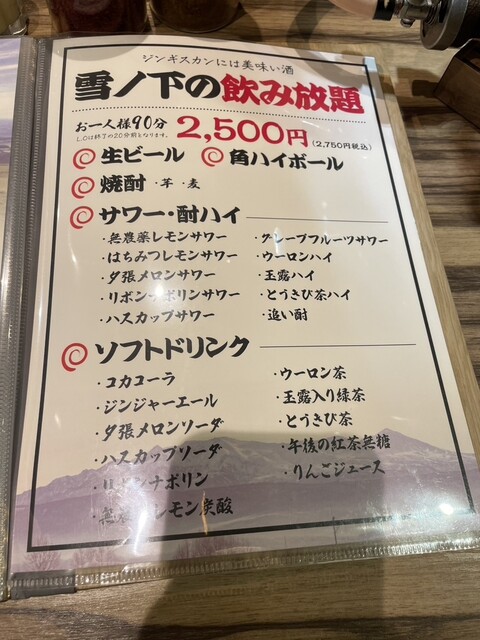 ジンギスカンには美味い酒
雪ノ下の飲み放題
お一人様90分 2,500円 (2,750円税込)
L.Oは終了の20分前となります。
生ビール 角ハイボール
焼酎・芋・麦
サワー・酎ハイ
・無農薬レモンサワー ・グレープフルーツサワー
・はちみつレモンサワー ・ウーロンハイ
・夕張メロンサワー ・玉露ハイ
・リボンナポリンサワー ・とうきび茶ハイ
・ハスカップサワー ・追い酎
ソフトドリンク
・コカコーラ ・ウーロン茶
・ジンジャーエール ・玉露入り緑茶
・夕張メロンソーダ ・とうきび茶
・ハスカップソーダ ・午後の紅茶無糖
・リボンナポリン ・りんごジュース
・無農薬レモン炭酸